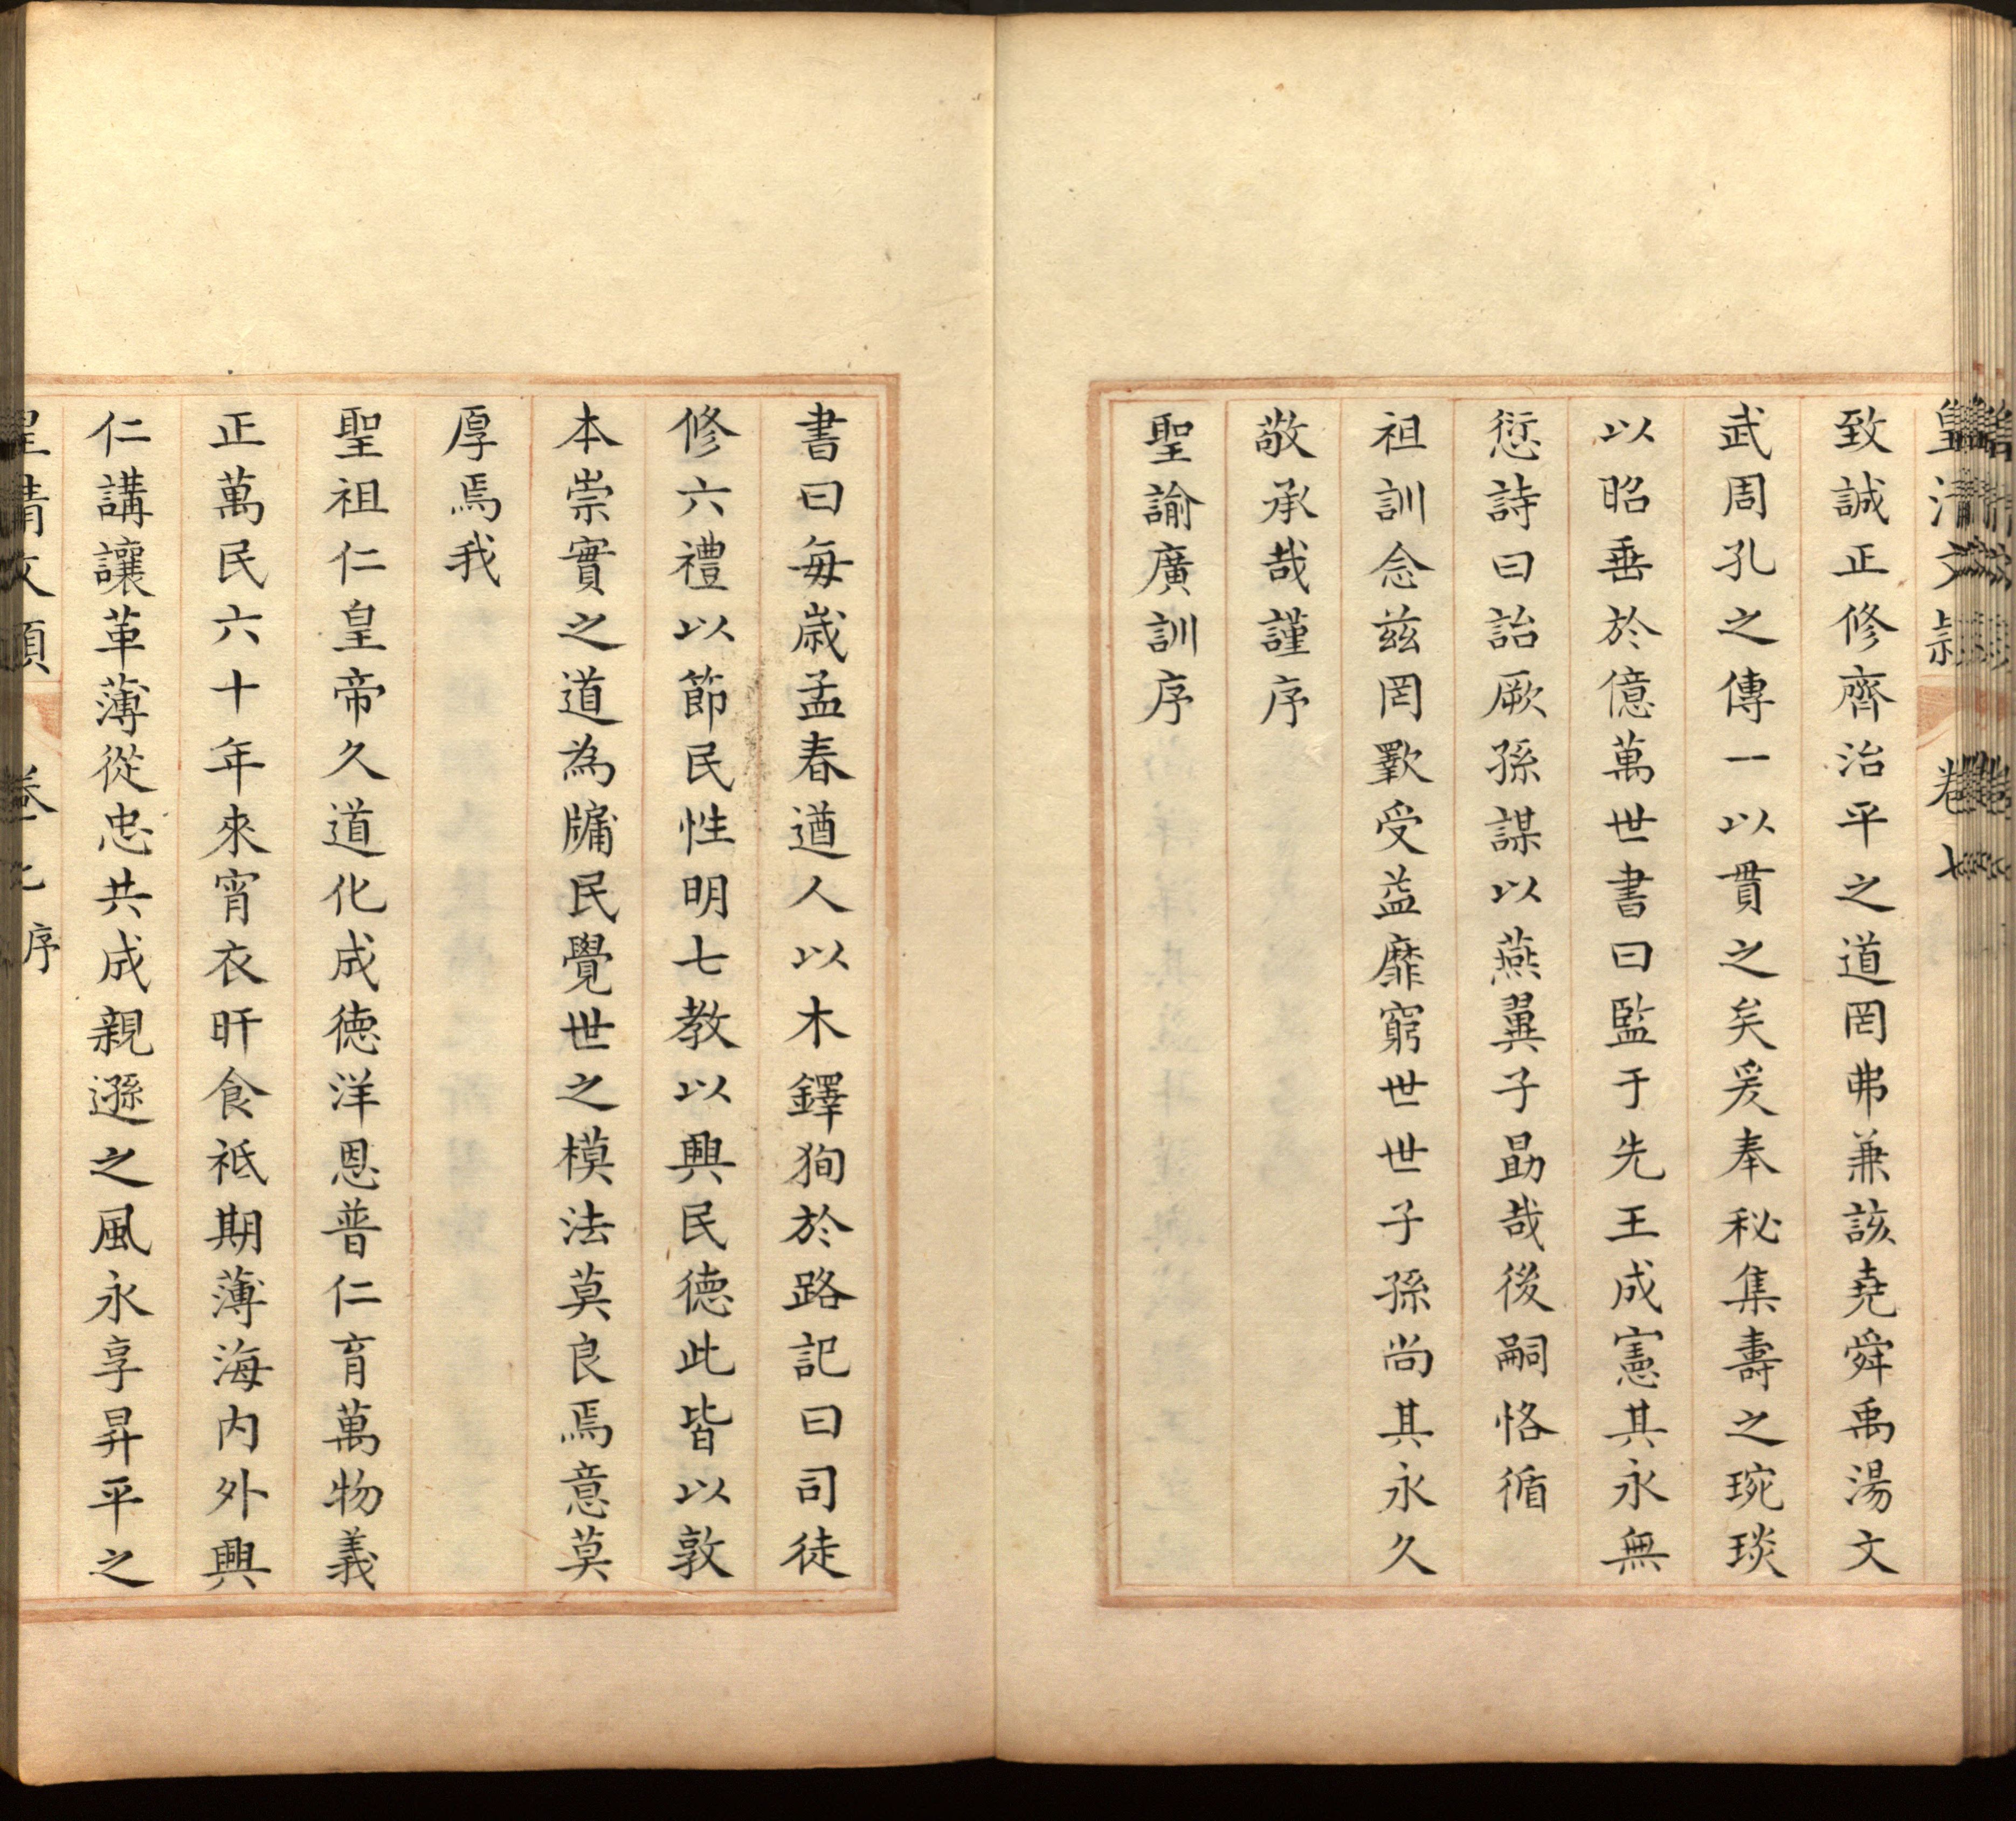 皇清文穎 卷七
致誠正修齊治平之道罔弗兼該堯舜禹湯文
武周孔之傳一以貫之矣爰奉秘集壽之琬琰
以昭垂於億萬世書曰監于先王成憲其永無
愆詩曰詒厥孫謀以燕翼子勗哉後嗣恪循
祖訓念茲罔斁受益靡窮世世子孫尚其永久
敬承哉謹序
聖諭廣訓序
書曰每歲孟春遒人以木鐸狥於路記曰司徒
修六禮以節民性明七教以興民德此皆以敦
本崇實之道為牖民覺世之模法莫良焉意莫
厚焉我
聖祖仁皇帝久道化成德洋恩普仁育萬物義
正萬民六十年來宵衣旰食祗期薄海內外興
仁講讓革薄從忠共成親遜之風永享昇平之
皇清文穎 卷七 序